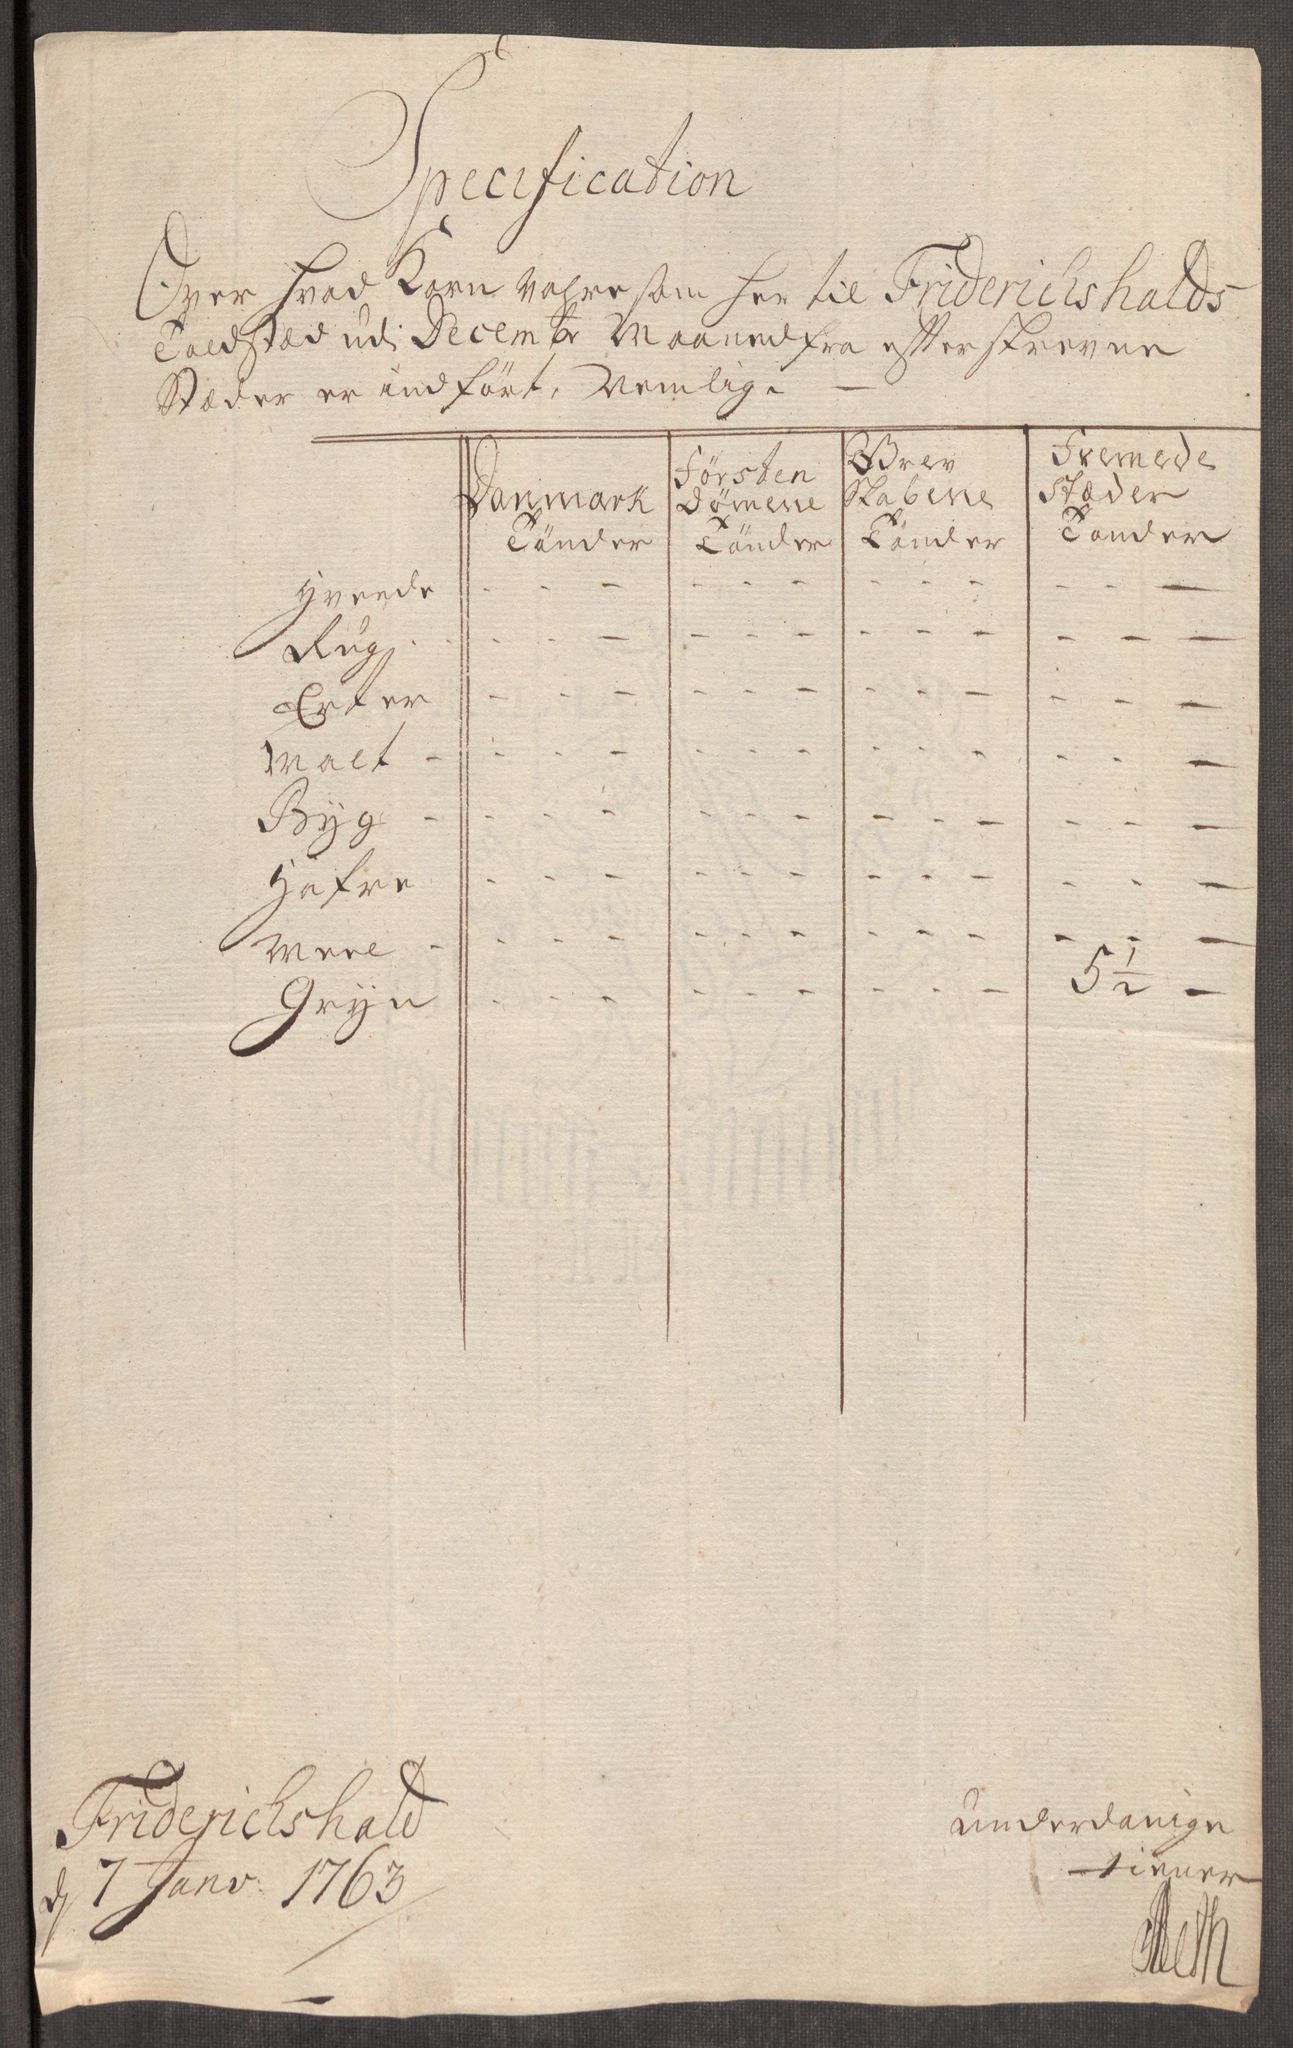 Specification
Over hvad Korn vahre som her til Friderichshalds
Toldstæd udi Decembr Maaned fra efterskrevne
Stæder er indført, Nemlig. —
Danmark Tønder | Førsten Dømene Tønder | Grev Skabene Tønder | Fremede Stæder Tønder
Hveede - - - | - - - | - - - | - - —
Rug - - - | - - - | - - - | - - —
Erter - - - | - - - | - - - | - - —
Malt - - - - | - - - | - - - | - - —
Byg - - - - | - - - | - - - | - - —
Hafre - - - | - - - | - - - | - - —
Meel - - - - | - - - | - - - | - - —
Gryn - - - | - - - | - - - | 5 1/2 —
Friderichshald
d 7 Janv: 1763
underdanige
tiener